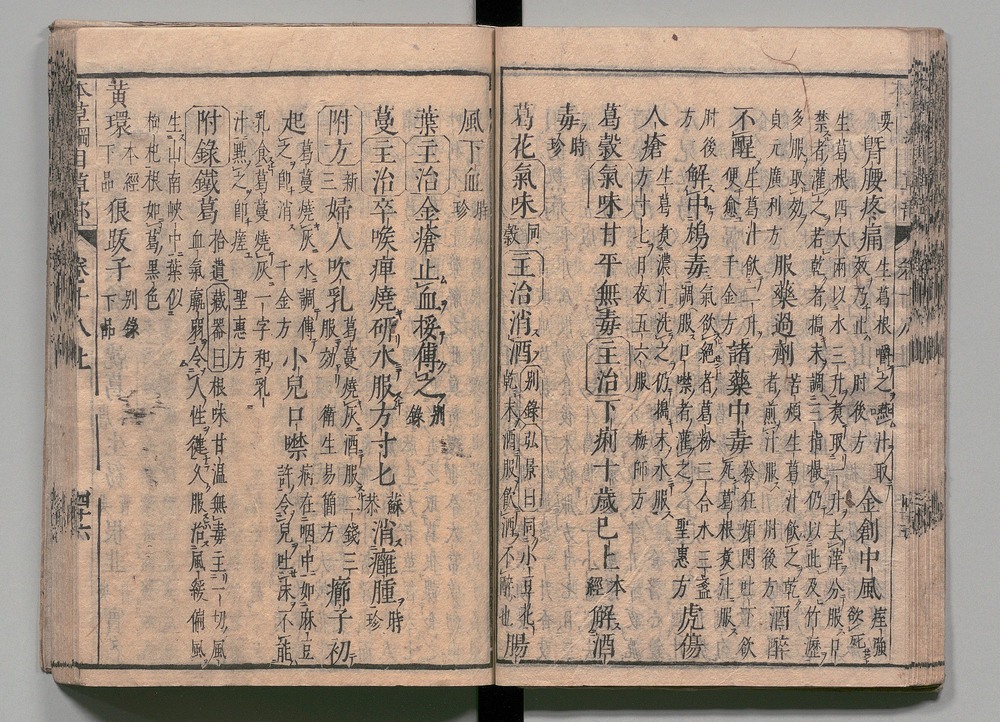 要 臀腰疼痛 生葛根嚼之嚥汁取效乃止 肘後方 金創中風 痙強欲死
生葛根四大兩以水三升煮取一升去滓分服口
禁者灌之若乾者搗末調三指撮仍以此及竹瀝
多服取效 貞元廣利方 服藥過劑 苦煩生葛汁飲之乾者煎汁服 肘後方 酒醉
不醒 生葛汁飲二升便愈 千金方 諸藥中毒 發狂煩悶吐下欲死葛根煮汁服
肘後方 解中鴆毒 氣欲絕者葛粉三合水三盞調服口噤者灌之 聖惠方 虎傷
人瘡 生葛煮濃汁洗之仍搗末水服方寸匕日夜五六服 梅師方
葛穀氣味甘平無毒主治下痢十歲已上 本經 解酒
毒 時珍
葛花氣味 同穀 主治消酒 別錄弘景曰同小豆花乾末酒服飲酒不醉也 腸
風下血 時珍
葉主治金瘡止血挼傅之 別錄
蔓主治卒喉痺燒研水服方寸匕 蘇恭 消癰腫 時珍
附方 新三 婦人吹乳 葛蔓燒灰酒服二錢三服效 衛生易簡方 癤子初
起 葛蔓燒灰水調傅之即消 千金方 小兒口噤 病在咽中如麻豆許令兒吐沫不能
乳食葛蔓燒灰一字和乳汁㸃之即瘥 聖惠方
附錄鐵葛 拾遺 藏器曰根味甘溫無毒主一切風血氣羸弱令人性健久服治風緩偏風
生山南峽中葉似柚枇根如葛黑色
黃環 本經下品 狼跋子 別錄下品
本草綱目草部 卷十八上 四十六